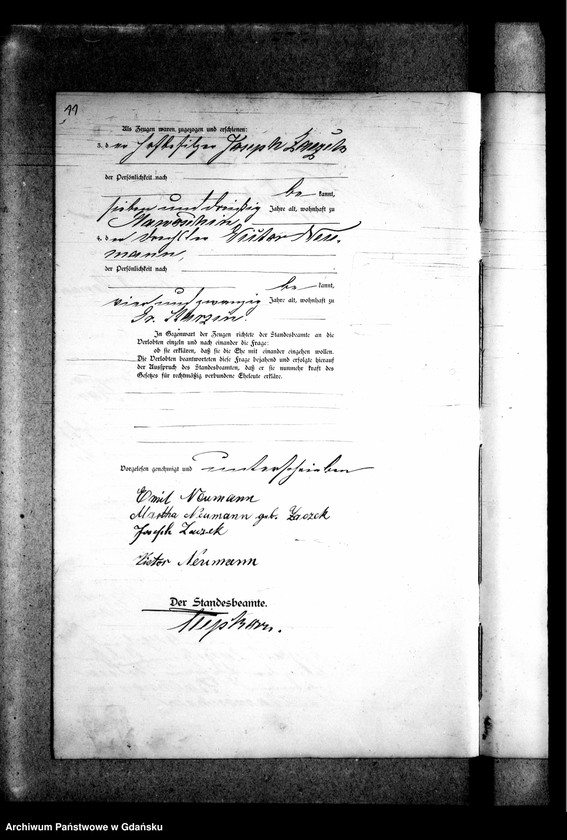 11
Als Zeugen waren zugezogen und erschienen:
3. der Hofbesitzer Joseph
der Persönlichkeit nach
be kannt,
sieben und dreißig Jahre alt, wohnhaft zu
4. der Victor Neu-
mann,
der Persönlichkeit nach
be kannt,
vier und zwanzig Jahre alt, wohnhaft zu
Gr. Starzin.
In Gegenwart der Zeugen richtete der Standesbeamte an die
Verlobten einzeln und nach einander die Frage:
ob sie erklären, daß sie die Ehe mit einander eingehen wollen.
Die Verlobten beantworteten diese Frage bejahend und erfolgte hierauf
der Ausspruch des Standesbeamten, daß er sie nunmehr kraft des
Gesetzes für rechtmäßig verbundene Eheleute erkläre.
Vorgelesen genehmigt und unterschrieben
Emil Neumann
Martha Neumann geb. Zaczek
Joseph Zaczek
Victor Neumann
Der Standesbeamte.
Archiwum Państwowe w Gdańsku